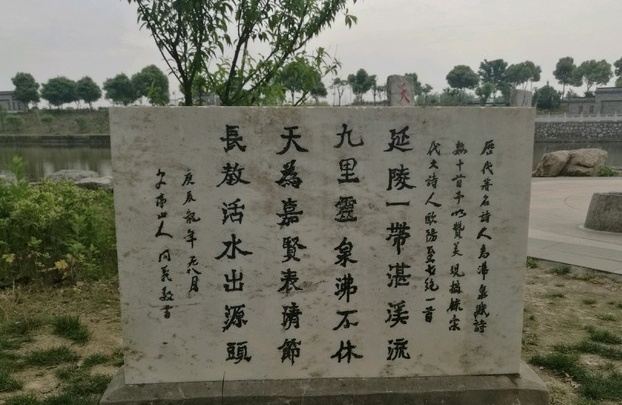 歷代著名詩人為沸泉賦詩
數十首予以贊美現摘錄宋
代大詩人歐陽修七絕一首
延陵一帶湛溪流
九里靈泉沸不休
天為嘉賢表清節
長教活水出源頭
庚辰龍年 八月
山人
天